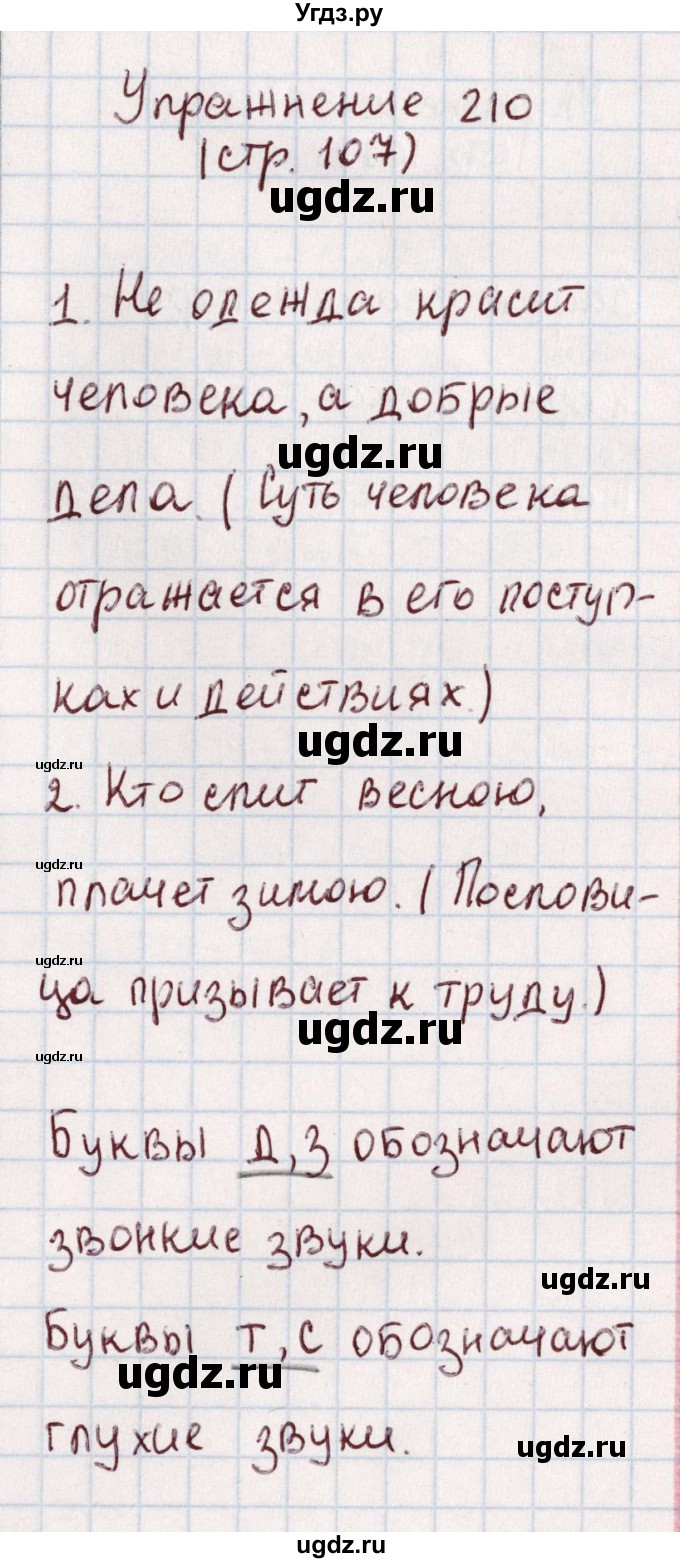 Угдз.ру
Упражнение 210
(стр. 107)
ugdz.ru
1. Не одежда красит
человека, а добрые
ugdz.ru
дела. (Суть человека
отражается в его поступ-
ках и действиях.)
ugdz.ru
ugdz.ru
2. Кто спит весною,
ugdz.ru
плачет зимою. (Послови-
ugdz.ru
ца призывает к труду.)
ugdz.ru
ugdz.ru
Буквы д, з обозначают
звонкие звуки.
ugdz.ru
Буквы т, с обозначают
ugdz.ru
глухие звуки.
ugdz.ru
ugdz.ru